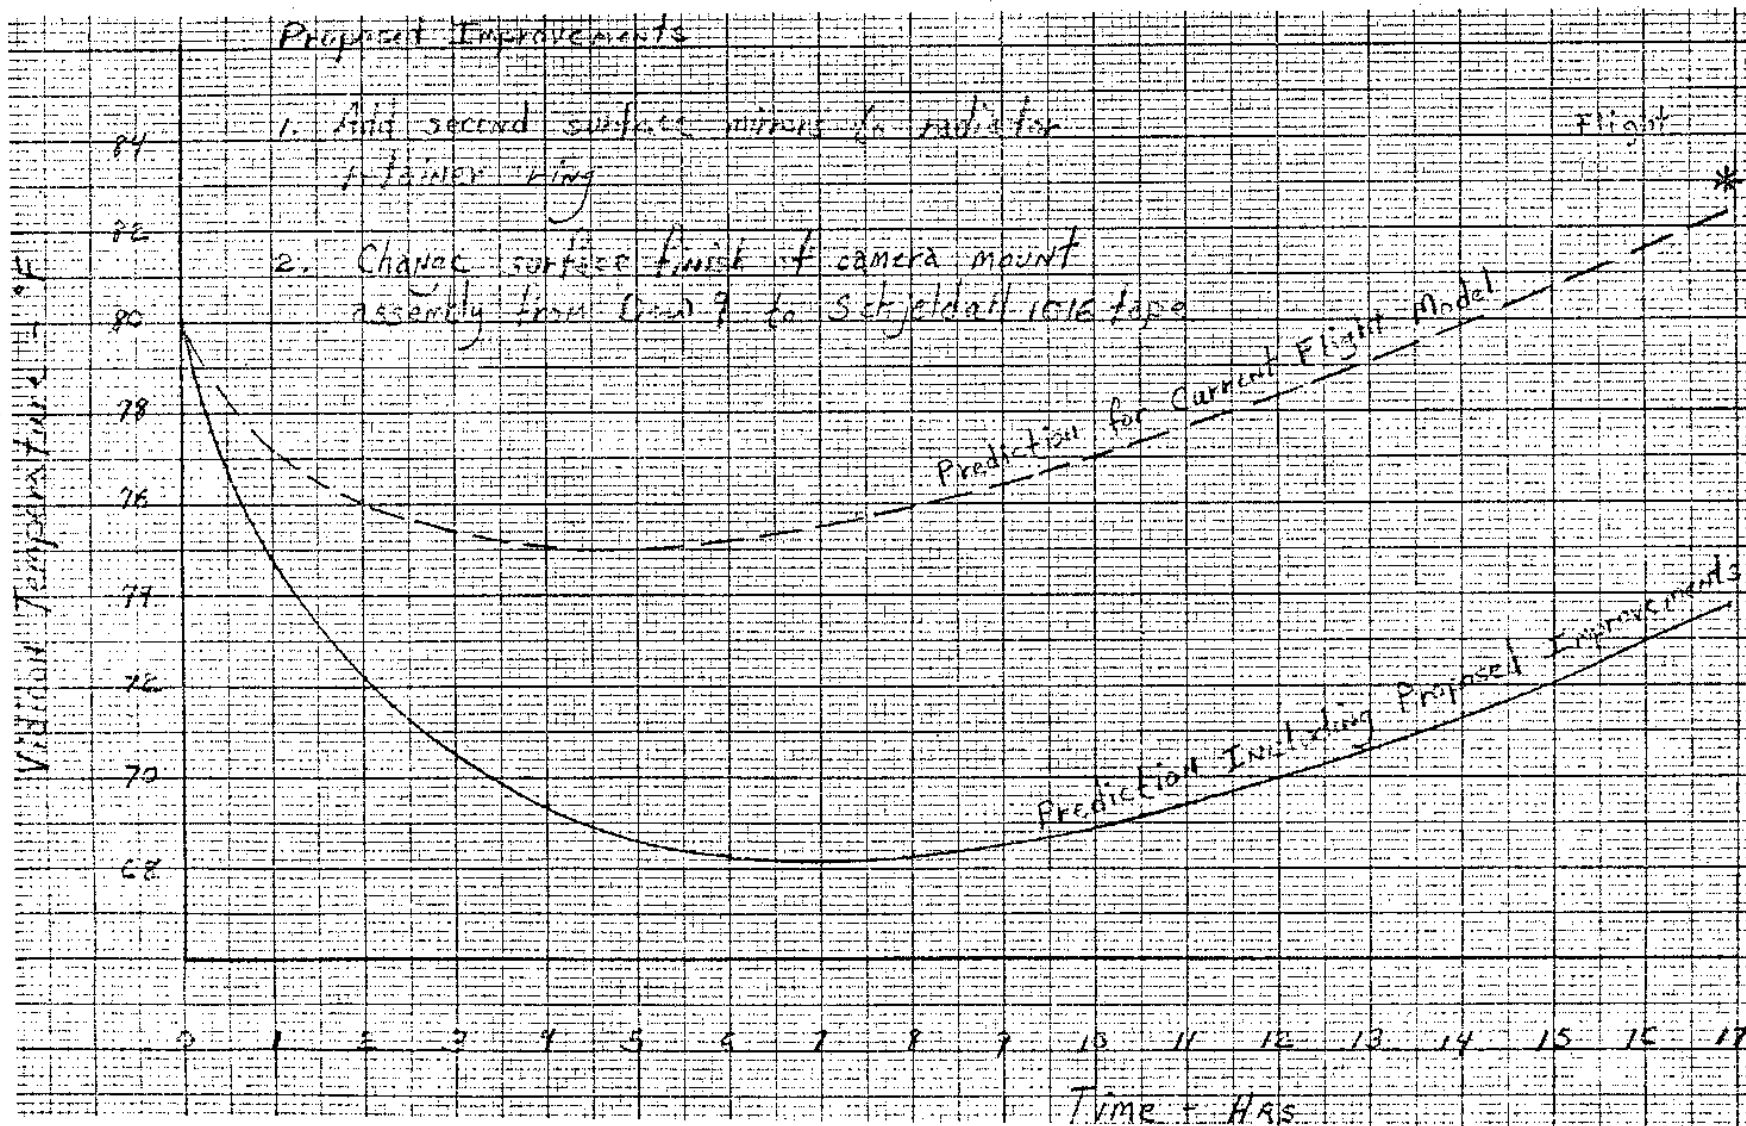 Proposed Improvements
1. Add second surface mirrors to radiator
retainer ring
2. Change surface finish of camera mount
assembly from Dow 9 to Schjeldahl 1016 tape
Flight
*
Prediction for Current Flight Model
Prediction Including Proposed Improvements
Vidicon Temperature - °F
84
82
80
78
76
74
72
70
68
0 1 2 3 4 5 6 7 8 9 10 11 12 13 14 15 16 17
Time - HRS